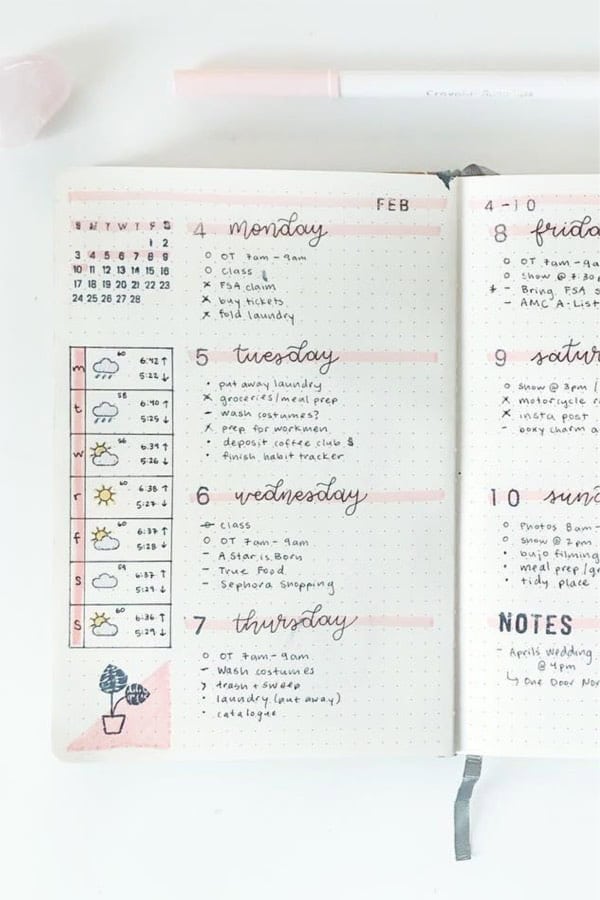 FEB
S M T W T F S
1 2
3 4 5 6 7 8 9
10 11 12 13 14 15 16
17 18 19 20 21 22 23
24 25 26 27 28
4 monday
OT 7am-9am
class
FSA claim
buy tickets
fold laundry
m 60 6:42 ↑
5:22 ↓
t 58 6:40 ↑
5:25 ↓
w 56 6:39 ↑
5:26 ↓
r 60 6:38 ↑
5:27 ↓
f 60 6:37 ↑
5:28 ↓
S 59 6:37 ↑
5:29 ↓
S 60 6:36 ↑
5:29 ↓
5 tuesday
put away laundry
groceries/meal prep
wash costumes?
prep for workmen
deposit coffee club $
finish habit tracker
6 wednesday
class
OT 7am-9am
A Star is Born
True Food
Sephora Shopping
7 thursday
OT 7am-9am
wash costumes
trash + sweep
laundry (put away)
catalogue
4-10
8 frida
OT 7am-9a
show @ 7:30p
* - Bring FSA
- AMC A-List
9 satur
show @ 3pm /
motorcycle
insta post
boxy charm
10 sun
Photos 8am-
show @ 2pm
bujo filming
meal prep/g
tidy place
NOTES
- April's wedding
@ 4pm
↳ One Door